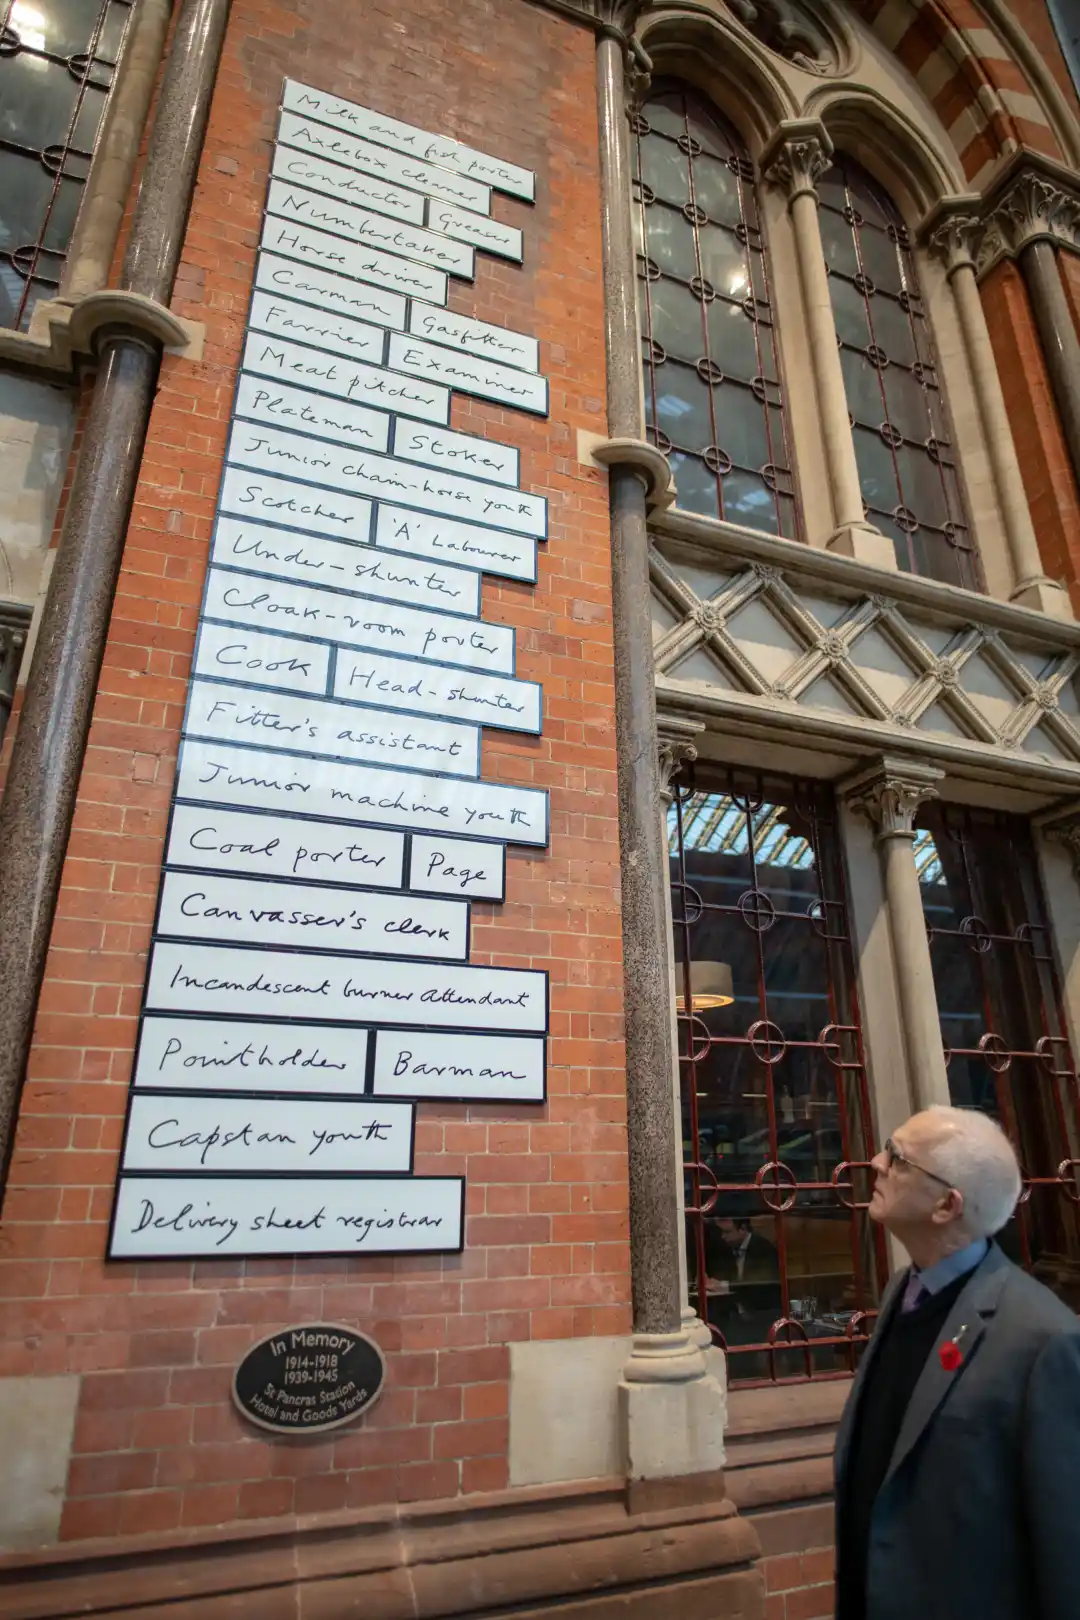 Milk and fish porter
Axlebox cleaner
Conductor Greaser
Numbertaker
Horse driver
Carman Gasfitter
Farrier Examiner
Meat pitcher
Plateman Stoker
Junior chain-horse youth
Scotcher 'A' Labourer
Under-shunter
Cloak-room porter
Cook Head-shunter
Fitter's assistant
Junior machine youth
Coal porter Page
Canvasser's clerk
Incandescent burner attendant
Pointholder Barman
Capstan youth
Delivery sheet registrar
In Memory
1914-1918
1939-1945
St Pancras Station
Hotel and Goods Yards